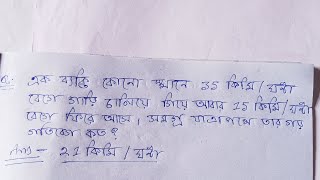 Q. এক ব্যক্তি কোনো স্থানে 35 কিমি/ঘন্টা
বেগে গাড়ি চালিয়ে গিয়ে আবার 15 কিমি/ঘন্টা
বেগে ফিরে আসে, সমগ্র যাত্রাপথে তার গড়
গতিবেগ কত?
Ans - 21 কিমি/ঘন্টা